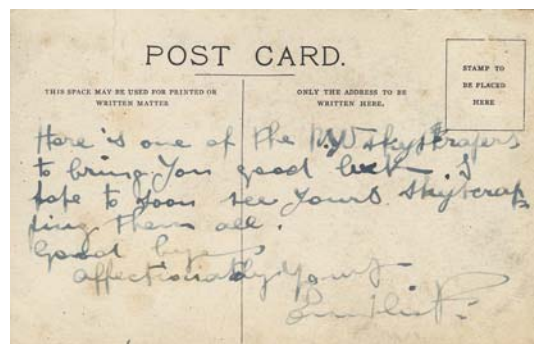 POST CARD.
THIS SPACE MAY BE USED FOR PRINTED OR
WRITTEN MATTER
ONLY THE ADDRESS TO BE
WRITTEN HERE,
STAMP TO
BE PLACED
HERE
Here is one of the N.Y. skyskrapers
to bring you good luck I
hope to soon see yours skyscrap
ping them all.
Good bye
affectionately yours